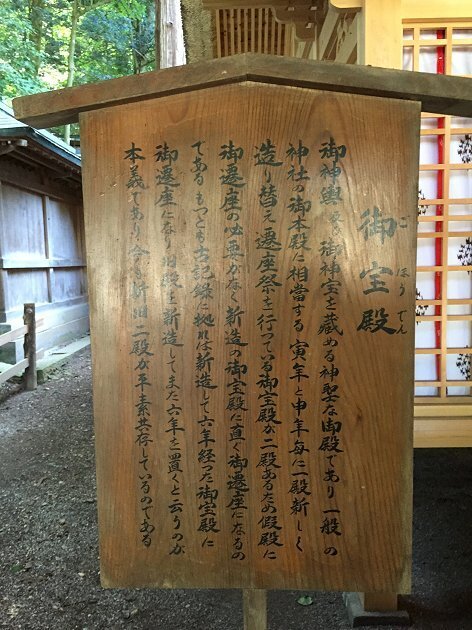 御宝殿
ごほうでん
御神輿及び御神宝を蔵める神聖な御殿であり一般の
神社の御本殿に相當する寅年と申年毎に一殿新しく
造り替え遷座祭を行っている御宝殿が二殿あるため假殿に
御遷座の必要がなく新造の御宝殿に直ぐ御遷座になるの
であるもっとも古記録に拠れば新造して六年経った御宝殿に
御遷座になり旧殿を新造してまた六年を置くと云うのが
本義であり今も新旧二殿が平素共存しているのである